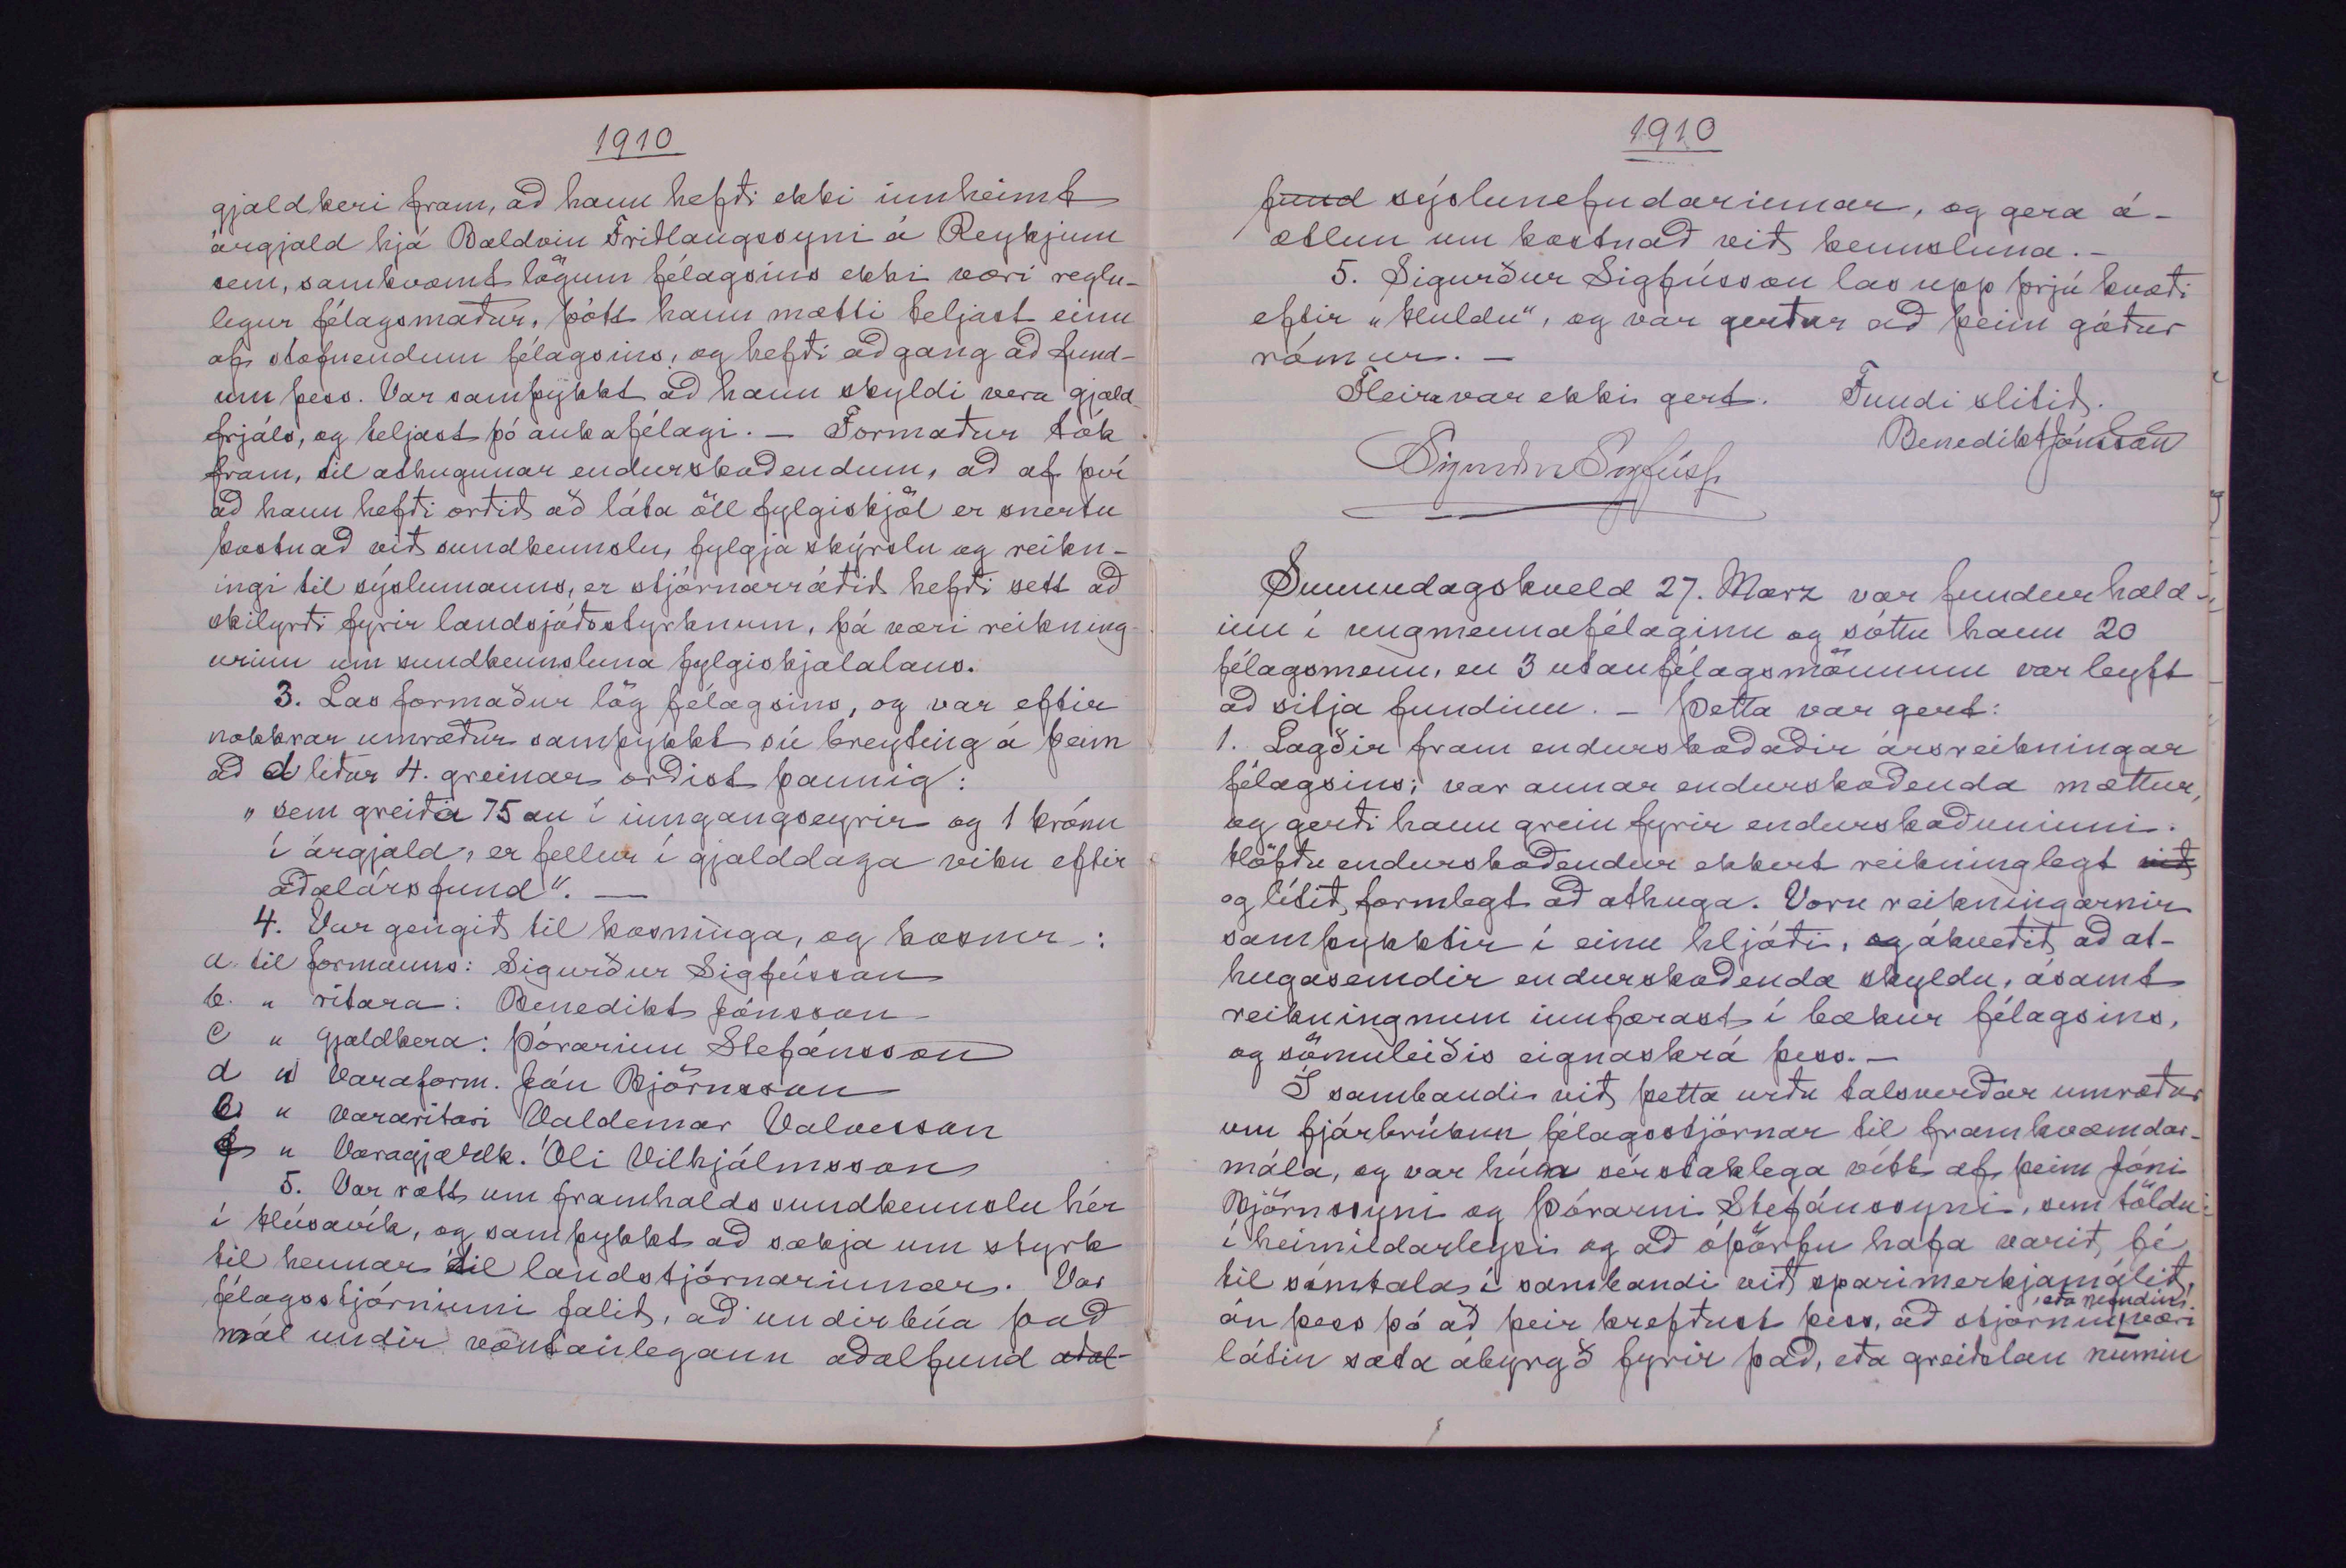 1910
gjaldkeri fram, að hann hefði ekki innheimt
árgjald hjá Baldvin Friðlaugssyni á Reykjum
sem, samkvæmt lögum félagsins ekki væri reglu-
legur félagsmaður, þótt hann mætti teljast einn
af stofnendum félagsins, og hefði aðgang að fund-
um þess. Var samþykkt að hann skyldi vera gjald-
frjáls, og teljast þó aukafélagi. — Formaður tók
fram, til athugunar endurskoðendum, að af því
að hann hefði orðið að láta öll fylgiskjöl er snertu
kostnað við sundkennslu, fylgja skýrslu og reikn-
ingi til sýslumanns, er stjórnarráðið hefði sett að
skilyrði fyrir landsjóðsstyrknum, þá væri reikning-
urinn um sundkennsluna fylgiskjalalaus.
3. Las formaður lög félagsins, og var eftir
nokkrar umræður samþykkt sú breyting á þeim
að d liður 4. greinar orðist þannig:
„sem greiða 75 au í inngangseyrir og 1 krónu
í árgjald, er fellur í gjalddaga viku eftir
aðalársfund“. —
4. Var gengið til kosninga, og kosnir:
a. til formanns: Sigurður Sigfússon
b. „ ritara: Benedikt Jónsson
c „ gjaldkera: Þórarinn Stefánsson
d „ varaform. Jón Björnsson
e „ vararitari Valdemar Valvesson
f „ Varagjaldk. Óli Vilhjálmsson
5. Var rætt um framhalds sundkennslu hér
í Húsavík, og samþykkt að sækja um styrk
til hennar til landstjórnarinnar. Var
félagsstjórninni falið, að undirbúa það
mál undir væntanlegann aðalfund aðal-
1910
fund sýslunefndarinnar, og gera á-
ætlun um kostnað við kennsluna. —
5. Sigurður Sigfússon las upp þrjú kvæði
eftir „Huldu“, og var gerður að þeim góður
rómur. —
Fleira var ekki gert. Fundi slitið.
Benedikt Jónsson
Sigurður Sigfúss.
Sunnudagskveld 27. Marz var fundur hald-
inn í ungmennafélaginu og sóttu hann 20
félagsmenn, en 3 utanfélagsmönnum var leyft
að sitja fundinn. — Þetta var gert:
1. Lagðir fram endurskoðaðir ársreikningar
félagsins; var annar endurskoðenda mættur,
og gerði hann grein fyrir endurskoðuninni.
Höfðu endurskoðendur ekkert reikninglegt við
og lítið formlegt að athuga. Voru reikningarnir
samþykktir í einu hljóði, og ákveðið að at-
hugasemdir endurskoðenda skyldu, ásamt
reikningnum innfærast í bækur félagsins,
og sömuleiðis eignaskrá þess. —
Í sambandi við þetta urðu talsverðar umræður
um fjárbrúkun félagsstjórnar til framkvæmdar-
mála, og var hún sérstaklega vítt af þeim Jóni
Björnssyni og Þórarni Stefánssyni, sem töldu
í heimildarleysi og að óþörfu hafa varið fé
til símtala í sambandi við sparimerkjamálið,
án þess þó að þeir krefðust þess, að stjórnin, eða nefndin, væri
látin sæta ábyrgð fyrir það, eða greiðslan numin